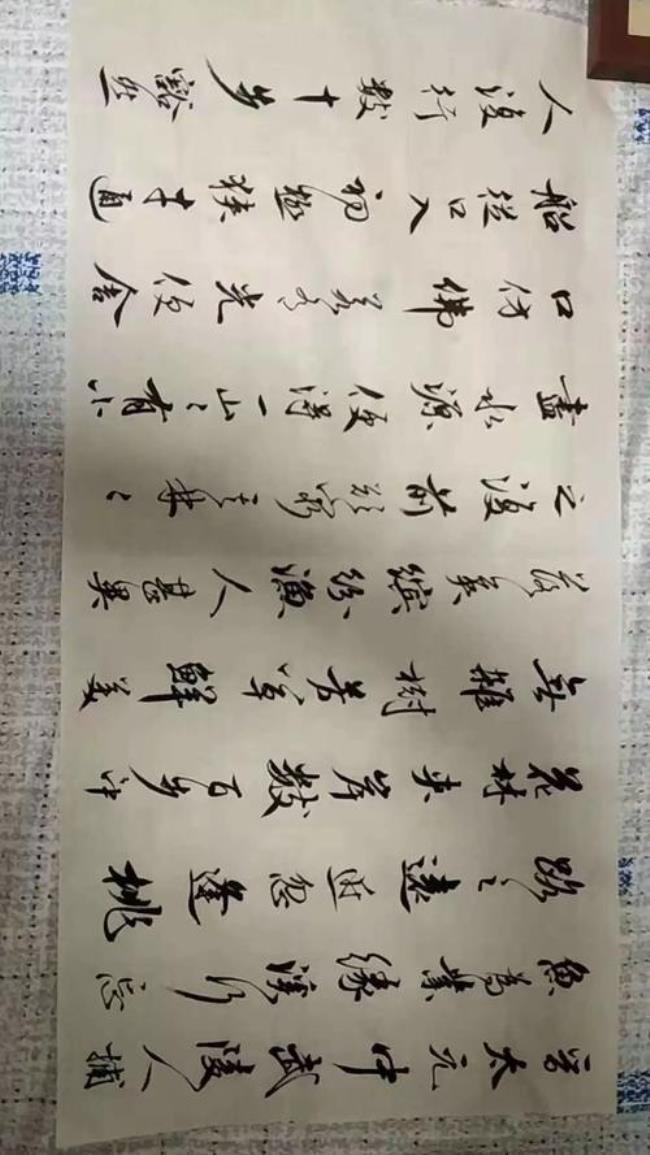 晉太元中武陵人捕
魚為業緣溪行忘
路之遠近忽逢桃
花林夾岸數百步中
無雜樹芳草鮮美
落英繽紛漁人甚異
之復前欲窮其林々
盡水源便得一山々有小
口仿佛若有光便舍
船從口入初極狹才通
人復行數十步豁然